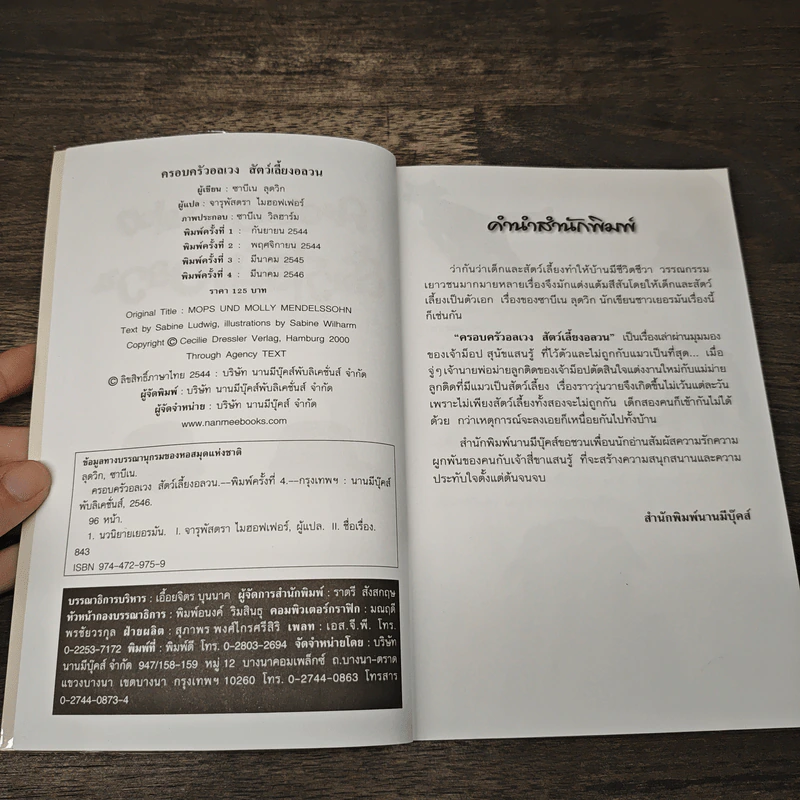 ครอบครัวอลเวง สัตว์เลี้ยงอลวน
ผู้เขียน : ซาบีเน ลุดวิก
ผู้แปล : จารุพัสตรา ไมฮอฟเฟอร์
ภาพประกอบ : ซาบีเน วิลฮาร์ม
พิมพ์ครั้งที่ 1 : กันยายน 2544
พิมพ์ครั้งที่ 2 : พฤศจิกายน 2544
พิมพ์ครั้งที่ 3 : มีนาคม 2545
พิมพ์ครั้งที่ 4 : มีนาคม 2546
ราคา 125 บาท
Original Title : MOPS UND MOLLY MENDELSSOHN
Text by Sabine Ludwig, illustrations by Sabine Wilharm
Copyright © Cecilie Dressler Verlag, Hamburg 2000
Through Agency TEXT
© ลิขสิทธิ์ภาษาไทย 2544 : บริษัท นานมีบุ๊คส์พับลิเคชั่นส์ จำกัด
ผู้จัดพิมพ์ : บริษัท นานมีบุ๊คส์พับลิเคชั่นส์ จำกัด
ผู้จัดจำหน่าย : บริษัท นานมีบุ๊คส์ จำกัด
www.nanmeebooks.com
ข้อมูลทางบรรณานุกรมของหอสมุดแห่งชาติ
ลุดวิก, ซาบีเน.
ครอบครัวอลเวง สัตว์เลี้ยงอลวน.--พิมพ์ครั้งที่ 4.--กรุงเทพฯ : นานมีบุ๊คส์
พับลิเคชั่นส์, 2546.
96 หน้า.
1. นวนิยายเยอรมัน. I. จารุพัสตรา ไมฮอฟเฟอร์, ผู้แปล. II. ชื่อเรื่อง.
843
ISBN 974-472-975-9
บรรณาธิการบริหาร : เอื้อยจิตร บุนนาค ผู้จัดการสำนักพิมพ์ : ราตรี สังสกฤษ
หัวหน้ากองบรรณาธิการ : พิมพ์อนงค์ ริมสินธุ คอมพิวเตอร์กราฟิก : มณฤดี
พรชัยวรกุล ฝ่ายผลิต : สุภาพร พงศ์ไกรศรีสิริ เพลท : เอส.จี.พี. โทร.
0-2253-7172 พิมพ์ที่ : พิมพ์ดี โทร. 0-2803-2694 จัดจำหน่ายโดย : บริษัท
นานมีบุ๊คส์ จำกัด 947/158-159 หมู่ 12 บางนาคอมเพล็กซ์ ถ.บางนา-ตราด
แขวงบางนา เขตบางนา กรุงเทพฯ 10260 โทร. 0-2744-0863 โทรสาร
0-2744-0873-4
คำนำสำนักพิมพ์
ว่ากันว่าเด็กและสัตว์เลี้ยงทำให้บ้านมีชีวิตชีวา วรรณกรรม
เยาวชนมากมายหลายเรื่องจึงมักแต่งแต้มสีสันโดยให้เด็กและสัตว์
เลี้ยงเป็นตัวเอก เรื่องของซาบีเน ลุดวิก นักเขียนชาวเยอรมันเรื่องนี้
ก็เช่นกัน
"ครอบครัวอลเวง สัตว์เลี้ยงอลวน" เป็นเรื่องเล่าผ่านมุมมอง
ของเจ้าม็อป สุนัขแสนรู้ ที่ไว้ตัวและไม่ถูกกับแมวเป็นที่สุด... เมื่อ
จู่ๆเจ้านายพ่อม่ายลูกติดของเจ้าม็อปตัดสินใจแต่งงานใหม่กับแม่ม่าย
ลูกติดที่มีแมวเป็นสัตว์เลี้ยง เรื่องราววุ่นวายจึงเกิดขึ้นไม่เว้นแต่ละวัน
เพราะไม่เพียงสัตว์เลี้ยงทั้งสองจะไม่ถูกกัน เด็กสองคนก็เข้ากันไม่ได้
ด้วย กว่าเหตุการณ์จะลงเอยก็เหนื่อยกันไปทั้งบ้าน
สำนักพิมพ์นานมีบุ๊คส์ขอชวนเพื่อนนักอ่านสัมผัสความรักความ
ผูกพันของคนกับเจ้าสี่ขาแสนรู้ ที่จะสร้างความสนุกสนานและความ
ประทับใจตั้งแต่ต้นจนจบ
สำนักพิมพ์นานมีบุ๊คส์